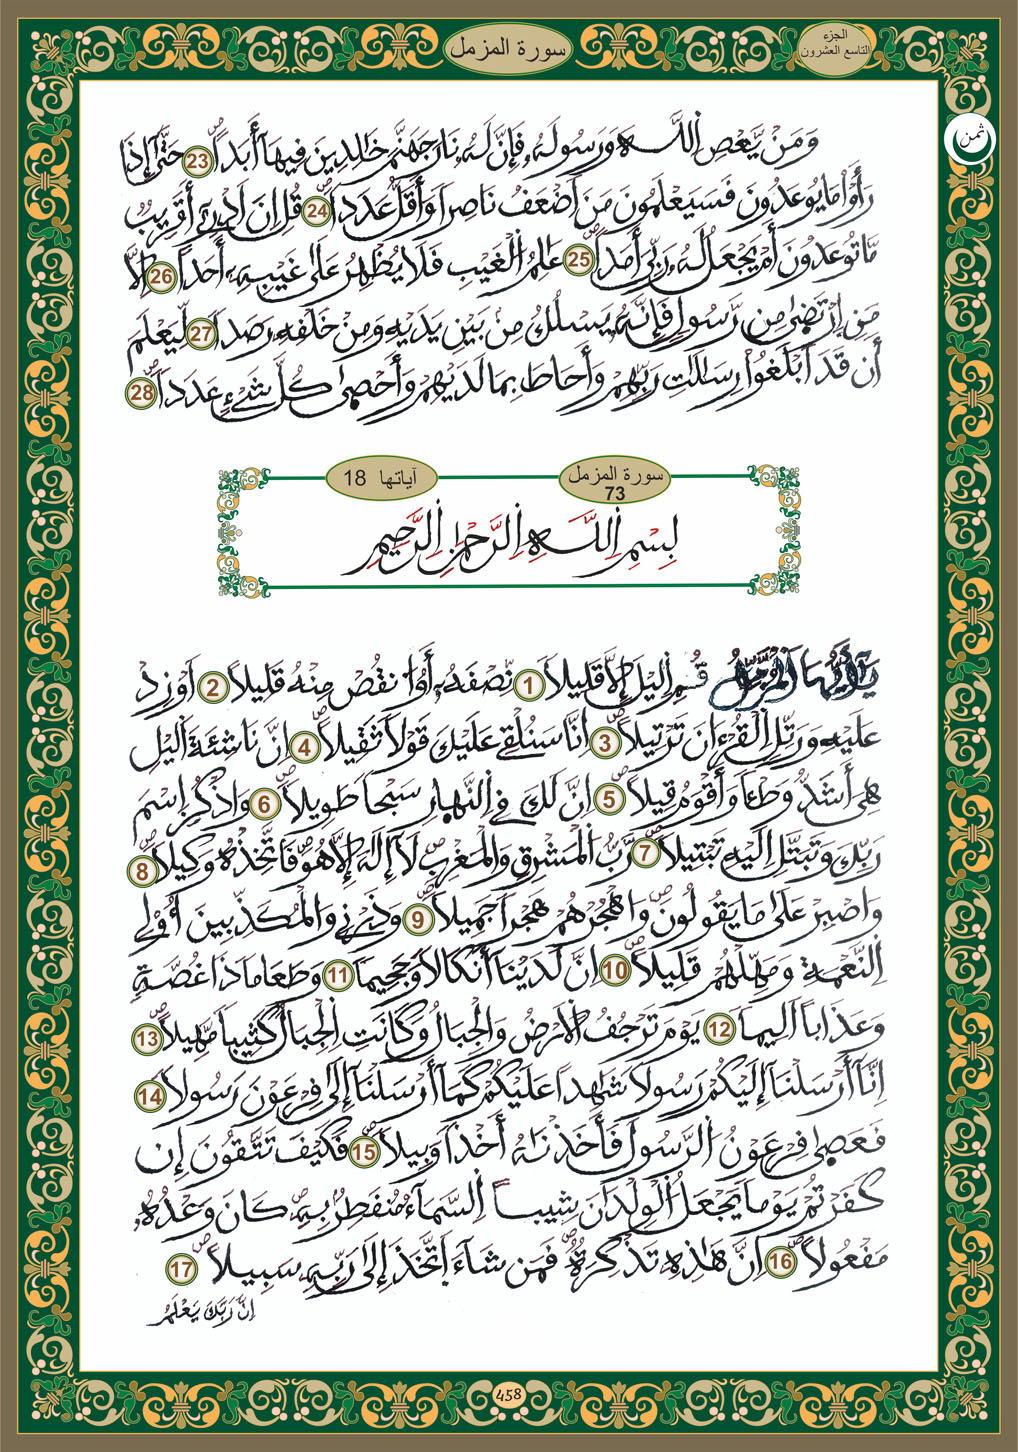 سورة المزمل
الجزء
التاسع العشرون
ثمن
وَمَنْ يَّعْصِ اِللَّهَ وَرَسُولَهُۥ فَإِنَّ لَهُۥ نَارَ جَهَنَّمَ خَٰلِدِينَ فِيهَآ أَبَداً 23 حَتَّىٰٓ إِذَا
رَأَوْاْ مَا يُوعَدُونَ فَسَيَعْلَمُونَ مَنَ اَضْعَفُ نَاصِراً وَأَقَلُّ عَدَداً 24 قُلِ اِنَ اَدْرِےٓ أَقَرِيبٌ
مَّا تُوعَدُونَ أَمْ يَجْعَلُ لَهُۥ رَبِّيَ أَمَداً 25 عَٰلِمُ اُلْغَيْبِ فَلَا يُظْهِرُ عَلَىٰ غَيْبِهِۦٓ أَحَداً 26 اِلَّا
مَنِ اِرْتَضَىٰ مِن رَّسُولٍ فَإِنَّهُۥ يَسْلُكُ مِنۢ بَيْنِ يَدَيْهِ وَمِنْ خَلْفِهِۦ رَصَداً 27 لِّيَعْلَمَ
أَن قَدَ اَبْلَغُواْ رِسَٰلَٰتِ رَبِّهِمْ وَأَحَاطَ بِمَا لَدَيْهِمْ وَأَحْصَىٰ كُلَّ شَےْءٍ عَدَداً 28
سورة المزمل
73
آياتها 18
بِسْمِ اِللَّهِ اِلرَّحْمَٰنِ اِلرَّحِيمِ
يَٰٓأَيُّهَا اَلْمُزَّمِّلُ قُمِ اِليْلَ إِلَّا قَلِيلاً 1 نِّصْفَهُۥٓ أَوُ اُنقُصْ مِنْهُ قَلِيلاً 2 اَوْ زِدْ
عَلَيْهِ وَرَتِّلِ اِلْقُرْءَانَ تَرْتِيلاً 3 اِنَّا سَنُلْقِے عَلَيْكَ قَوْلاً ثَقِيلاً 4 اِنَّ نَاشِئَةَ اَليْلِ
هِيَ أَشَدُّ وَطْـٔاً وَأَقْوَمُ قِيلاً 5 اِنَّ لَكَ فِے اِلنَّهَارِ سَبْحاً طَوِيلاً 6 وَاذْكُرِ اِسْمَ
رَبِّكَ وَتَبَتَّلِ اِلَيْهِ تَبْتِيلاً 7 رَّبُّ اُلْمَشْرِقِ وَالْمَغْرِبِ لَآ إِلَٰهَ إِلَّا هُوَ فَاتَّخِذْهُ وَكِيلاً 8
وَاصْبِرْ عَلَىٰ مَا يَقُولُونَ وَاهْجُرْهُمْ هَجْراً جَمِيلاً 9 وَذَرْنِے وَالْمُكَذِّبِينَ أُوْلِے
اِلنَّعْمَةِ وَمَهِّلْهُمْ قَلِيلاً 10 اِنَّ لَدَيْنَآ أَنكَالاً وَجَحِيماً 11 وَطَعَاماً ذَا غُصَّةٍ
وَعَذَاباً اَلِيماً 12 يَوْمَ تَرْجُفُ اُلْأَرْضُ وَالْجِبَالُ وَكَانَتِ اِلْجِبَالُ كَثِيباً مَّهِيلاً 13
اِنَّآ أَرْسَلْنَآ إِلَيْكُمْ رَسُولاً شَٰهِداً عَلَيْكُمْ كَمَآ أَرْسَلْنَآ إِلَىٰ فِرْعَوْنَ رَسُولاً 14
فَعَصَىٰ فِرْعَوْنُ اُلرَّسُولَ فَأَخَذْنَٰهُ أَخْذاً وَبِيلاً 15 فَكَيْفَ تَتَّقُونَ إِن
كَفَرْتُمْ يَوْماً يَجْعَلُ اُلْوِلْدَٰنَ شِيباً اِلسَّمَآءُ مُنفَطِرٌۢ بِهِۦ كَانَ وَعْدُهُۥ
مَفْعُولاً 16 اِنَّ هَٰذِهِۦ تَذْكِرَةٌ فَمَن شَآءَ اَتَّخَذَ إِلَىٰ رَبِّهِۦ سَبِيلاً 17
اِنَّ رَبَّكَ يَعْلَمُ
458